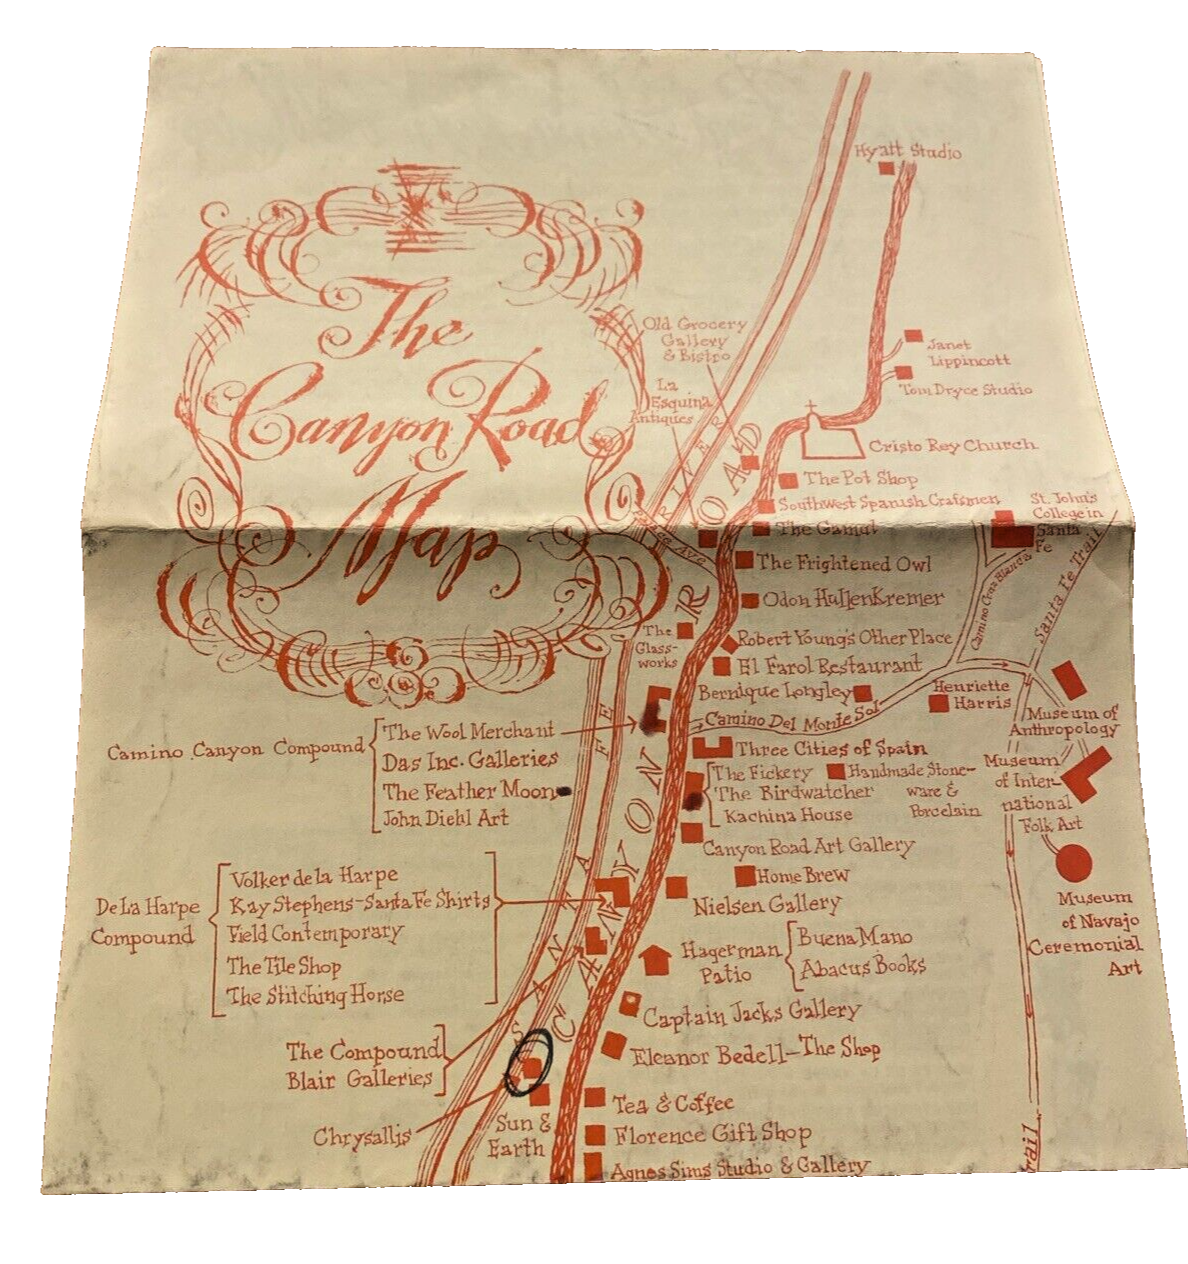 The
Canyon Road
Map
Hyatt Studio
Old Grocery
Gallery
& Bistro
La
Esquina
Antiques
Janet
Lippincott
Tom Dryce Studio
Cristo Rey Church
The Pot Shop
Southwest Spanish Craftsmen
St. John's
College in
Santa
Fe
The Gamut
The Frightened Owl
Odon Hullenkremer
The
Glass-
works
Robert Young's Other Place
El Farol Restaurant
Bernique Longley
Henriette
Harris
Camino Del Monte Sol
Camino Cruz Blanca
Santa Fe Trail
Museum of
Anthropology
Museum
of Inter-
national
Folk Art
Museum
of Navajo
Ceremonial
Art
Camino Canyon Compound
The Wool Merchant
Das Inc. Galleries
The Feather Moon
John Diehl Art
Three Cities of Spain
The Fickery
The Birdwatcher
Kachina House
Handmade Stone-
ware &
Porcelain
Canyon Road Art Gallery
Home Brew
Nielsen Gallery
De La Harpe
Compound
Volker de la Harpe
Kay Stephens-Santa Fe Shirts
Field Contemporary
The Tile Shop
The Stitching Horse
Hagerman
Patio
Buena Mano
Abacus Books
Captain Jacks Gallery
Eleanor Bedell-The Shop
The Compound
Blair Galleries
Chrysallis
Sun &
Earth
Tea & Coffee
Florence Gift Shop
Agnes Sims Studio & Gallery
SANTA FE RIVER
CANYON ROAD
rail